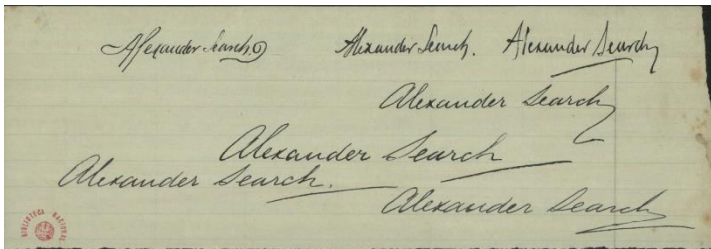 Alexander Search Alexander Search. Alexander Search
Alexander Search
Alexander Search
Alexander Search.
Alexander Search
BIBLIOTECA NACIONAL